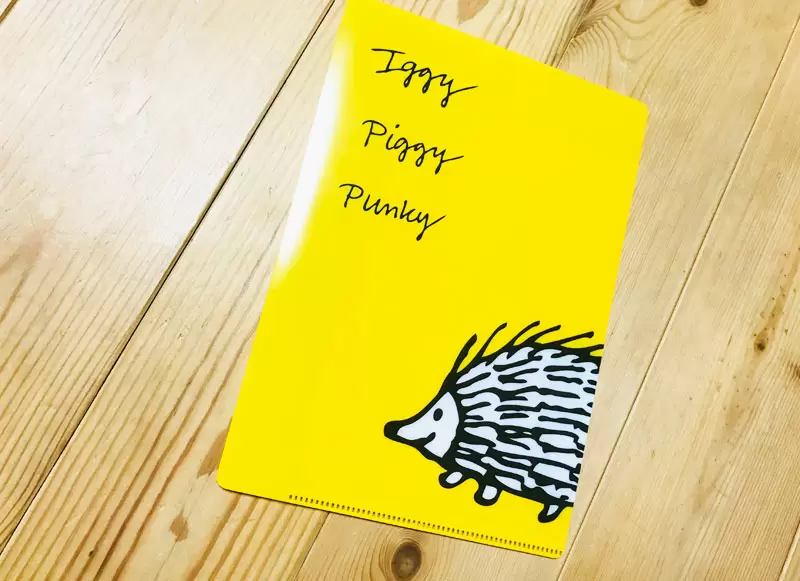 Iggy
Piggy
Punky